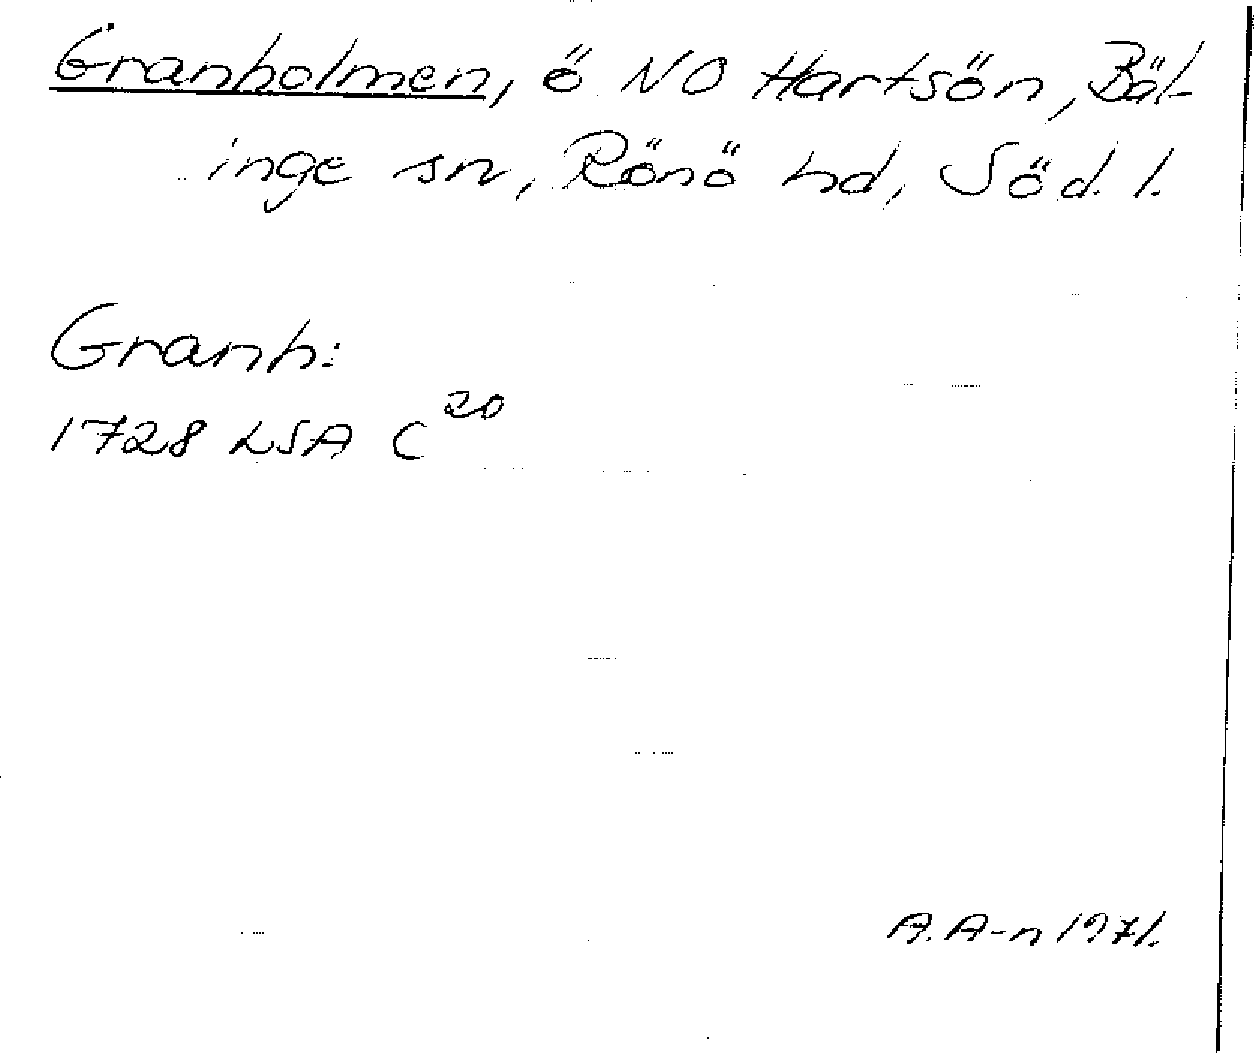 Granholmen, ö NO Hartsön, Bäl-
inge sn, Rönö hd, Söd. l.
Granh:
1728 LSA C²⁰
A. A-n 1971.